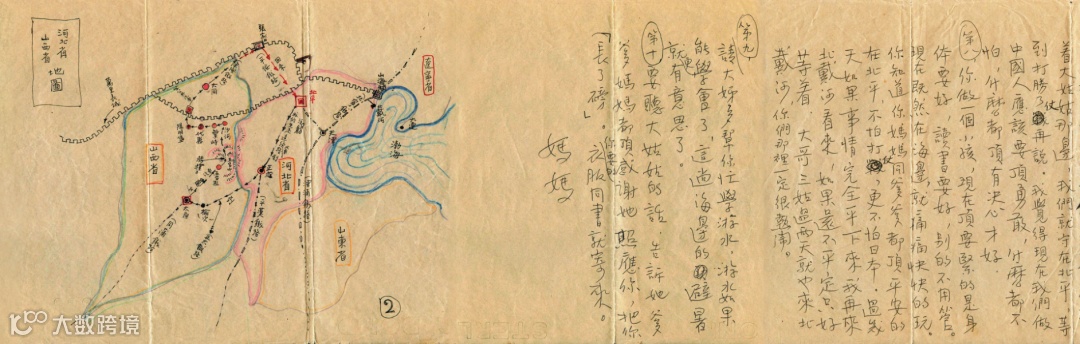 着大姑姑那邊，我們就守在北平，等
到打勝了仗再說。我覺得現在我們做
中國人應該要頂勇敢，什麼都不
怕，什麼都頂有決心才好。
第八，你做一個小孩，現在頂要緊的是身
体要好，讀書要好，別的不用管。
現在既然在海邊，就痛痛快快的玩。
你知道你媽媽同爹爹都頂平安的
在北平，不怕打仗，更不怕日本。過幾
天如果事情完全平下來，我再來
北戴河看來，如果還不平定，只好
等着。大哥三姑過兩天就也來北
戴河，你們那裡一定很熱鬧。
第九
請大姊多幫你忙學游水，游水如果
能學會了，這趟海邊的避暑
就更有意思了。
第十要聽大姑姑的話，告訴她爹
爹媽媽都頂感謝她照應你，把你
「長了磅」。你要的衣服同書就寄來。
媽媽
河北省
山西省 地圖
遼寧省
山西省
河北省
山東省
渤海
北平
天津
大同
太原
石家庄
②
大数跨境
10100.com